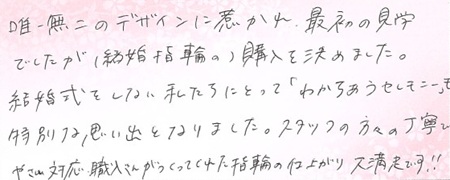 唯一無二のデザインに惹かれ、最初の見学
でしたが(結婚指輪の)購入を決めました。
結婚式をしない私たちにとって「わかちあうセレモニー」も
特別な思い出となりました。スタッフの方々の丁寧で
やさしい対応、職人さんがつくってくれた指輪の仕上がり大満足です!!